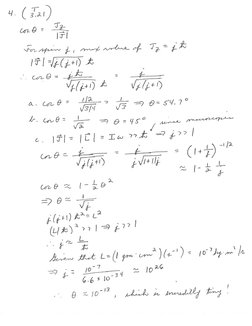 4. (T 3.21)
cos θ = J_z / |J⃗|
For spin j, max value of J_z = jℏ
|J⃗| = √(j(j+1)) ℏ
∴ cos θ = jℏ / (√(j(j+1)) ℏ) = j / √(j(j+1))
a. cos θ = (1/2) / √(3/4) = 1/√3 ⇒ θ = 54.7°
b. cos θ = 1/√2 ⇒ θ = 45°
c. |J⃗| = |L⃗| = Iω >> ℏ ⇒ j >> 1, since macroscopic
cos θ = j / √(j(j+1)) = j / (j√(1+1/j)) = (1 + 1/j)^(-1/2)
≈ 1 - 1/2 1/j
cos θ ≈ 1 - 1/2 θ²
⇒ θ ≈ 1/√j
j(j+1) ℏ² = L²
(L/ℏ)² >> 1 ⇒ j >> 1
∴ j ≈ L/ℏ
Given that L = (1 gm cm²)(s⁻¹) = 10⁻⁷ kg m²/s
⇒ j = 10⁻⁷ / 6.6 × 10⁻³⁴ ≈ 10²⁶
∴ θ ≈ 10⁻¹³, which is incredibly tiny!